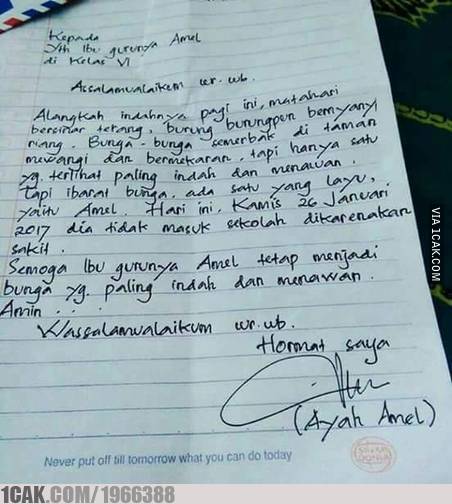 Kepada
Yth Ibu gurunya Amel
di Kelas VI
Assalamualaikum wr. wb.
Alangkah indahnya pagi ini, matahari
bersinar terang, burung burungpun bernyanyi
riang. Bunga-bunga semerbak di taman
mewangi dan bermekaran, tapi hanya satu
yg. terlihat paling indah dan menawan.
Tapi ibarat bunga, ada satu yang layu,
yaitu Amel. Hari ini, Kamis 26 Januari
2017 dia tidak masuk sekolah dikarenakan
sakit.
Semoga Ibu gurunya Amel tetap menjadi
bunga yg. paling indah dan menawan.
Amin . . .
Wassalamualaikum wr. wb.
Hormat saya
(Ayah Amel)
Never put off till tomorrow what you can do today
VIA 1CAK.COM
1CAK.COM/1966388